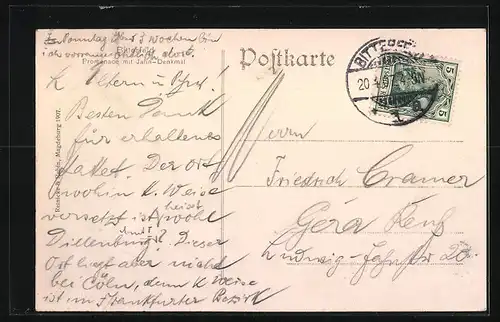 Sonntag über 3 Wochen bin
ich voraussichtlich dort.
Bitterfeld
Promenade mit Jahn-Denkmal
L. Eltern u.
Besten Dank
für erhaltenes
Der Ort
wohin K. Weise
versetzt ist heisst wohl
Dillenburg? Dieser
Ort liegt aber nicht
bei Cöln, denn K Weise
ist im Frankfurter Bezirk
Magdeburg 1907.
Postkarte
BITTERF
20.
1
5 5
Herrn
Friedrich Cramer
Gera Reuß
Ludwig-Jahnstr 20.